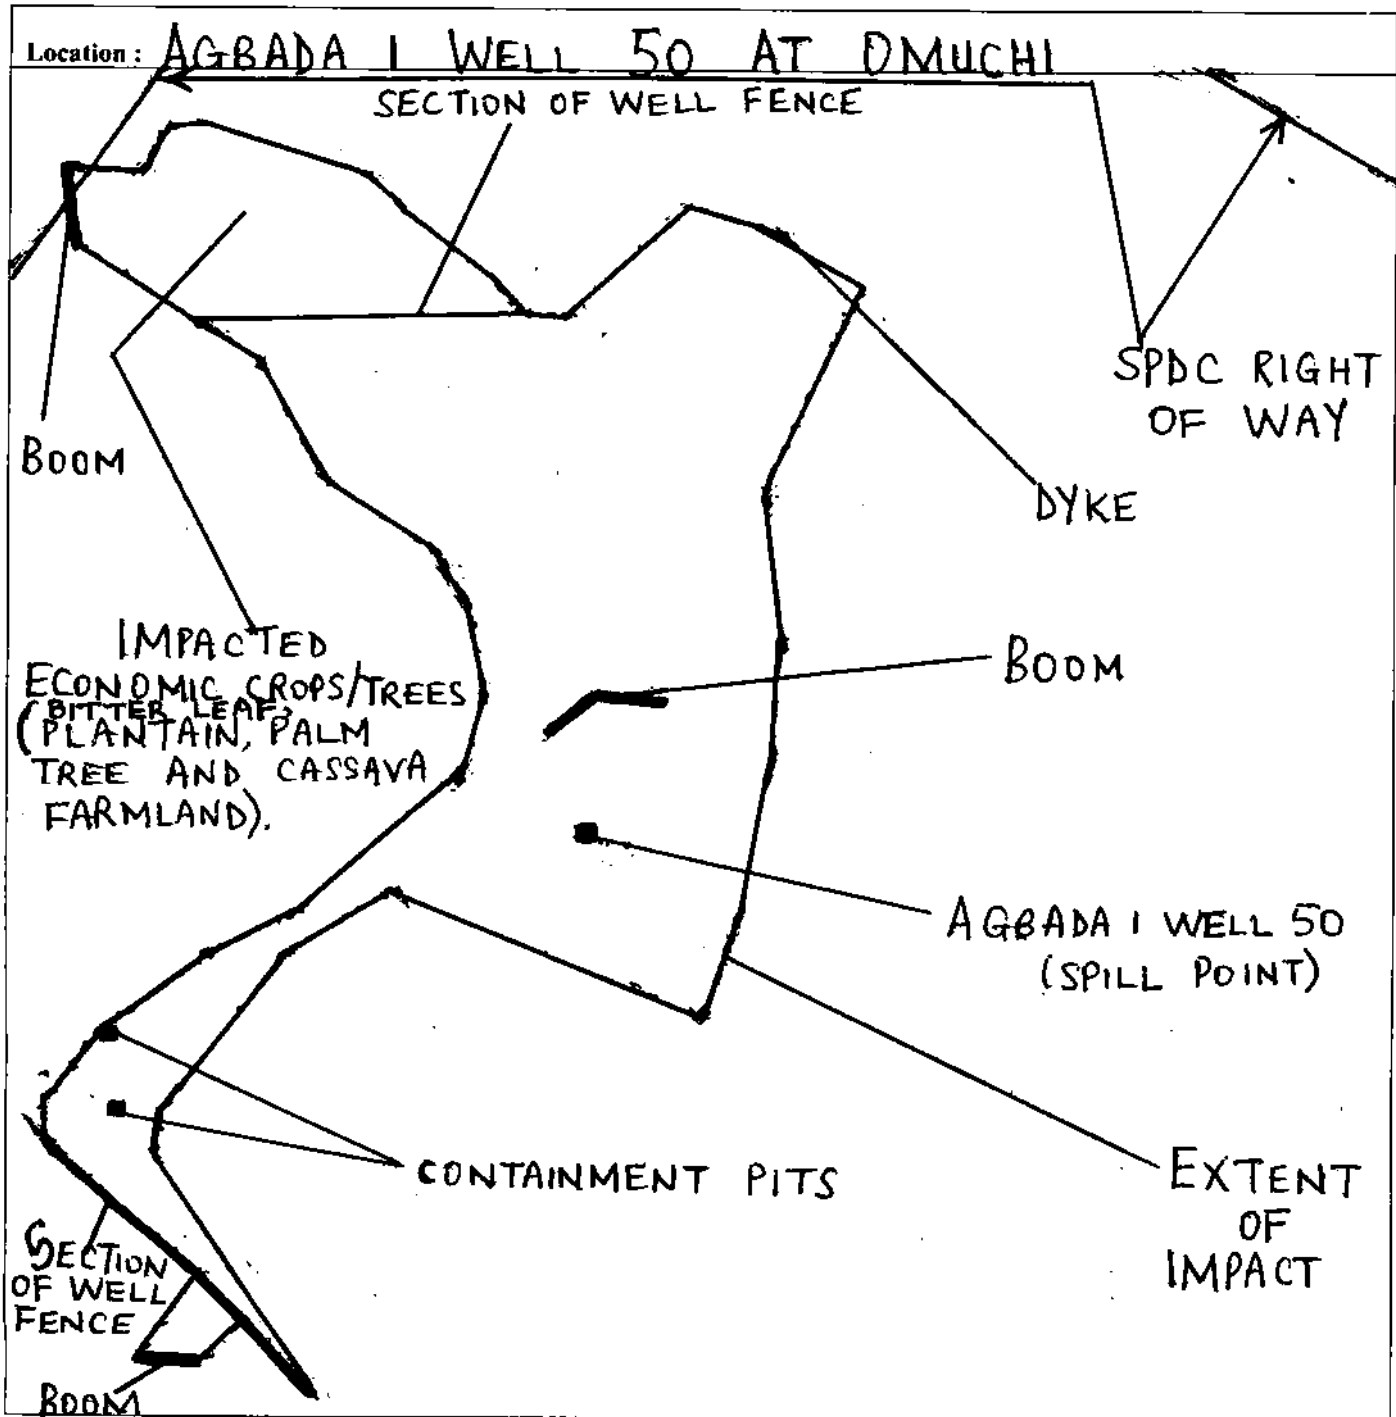 Location : AGBADA 1 WELL 50 AT OMUCHI
SECTION OF WELL FENCE
SPDC RIGHT
OF WAY
BOOM
DYKE
IMPACTED
ECONOMIC CROPS/TREES
(BITTER LEAF,
PLANTAIN, PALM
TREE AND CASSAVA
FARMLAND).
BOOM
AGBADA 1 WELL 50
(SPILL POINT)
CONTAINMENT PITS
EXTENT
OF
IMPACT
SECTION
OF WELL
FENCE
BOOM